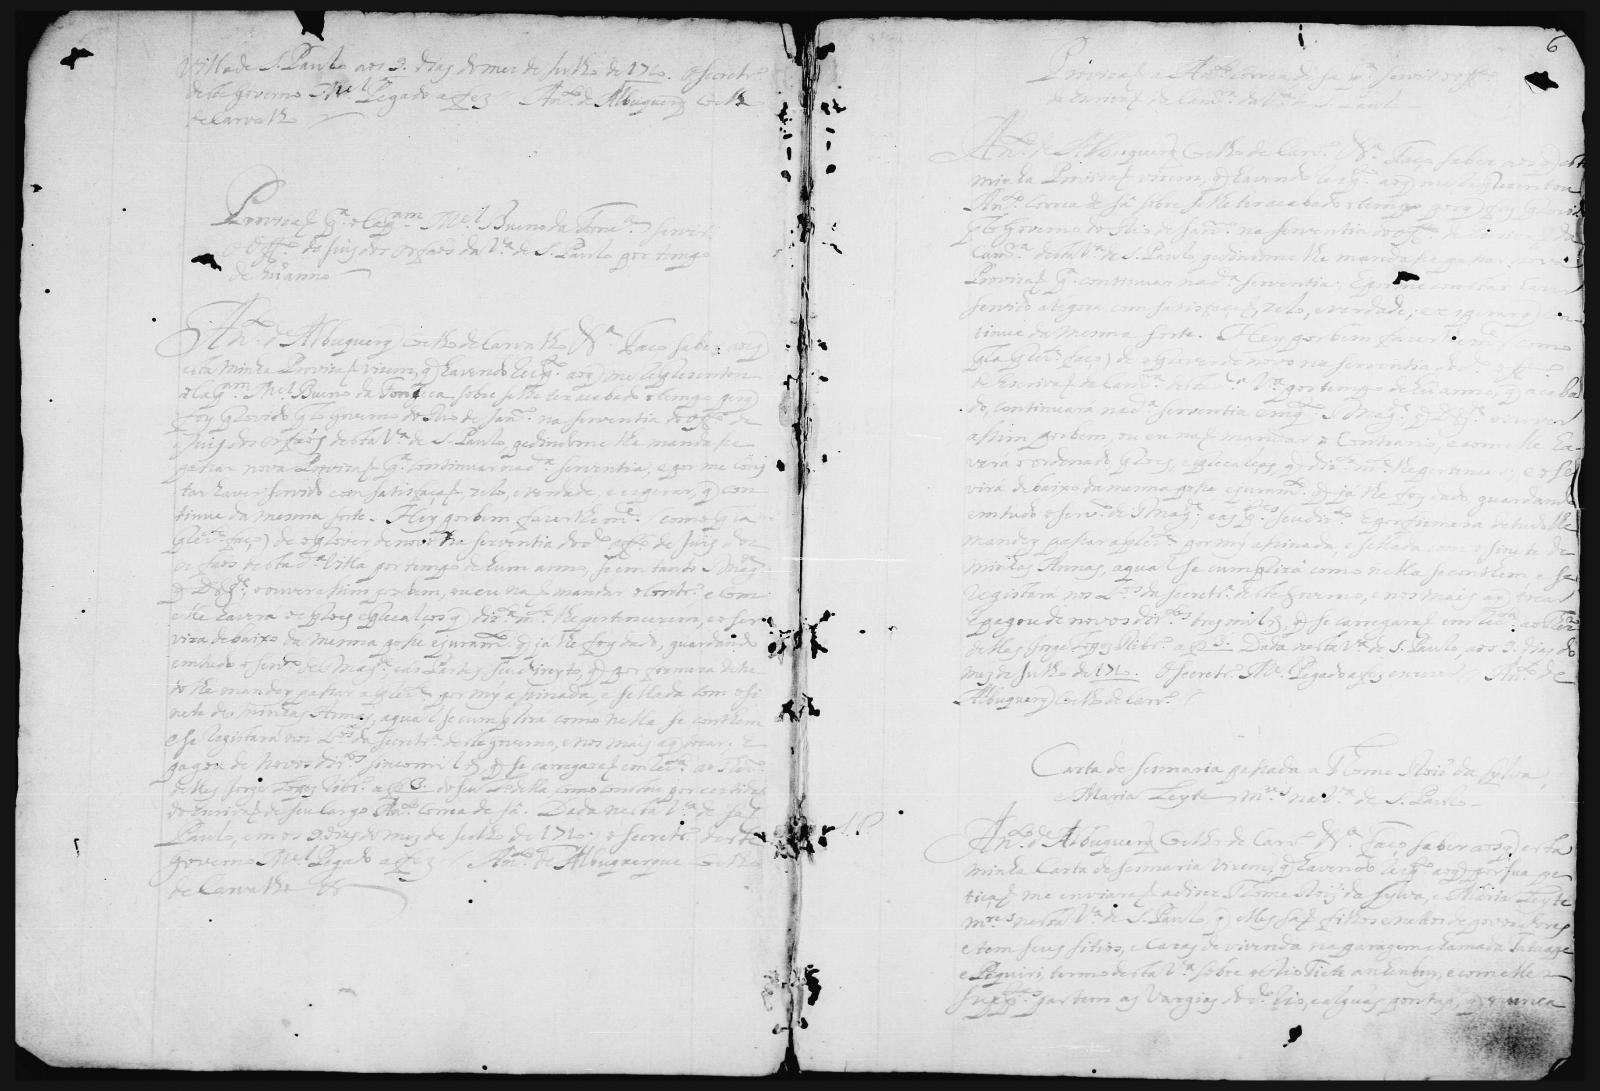 Villa de S. Paulo aos 9. dias do mes de Julho de 1710. O secretr.º
deste governo M.el Pegado a fez // An.to de Albuquerq Coelho
de Carvalho
Provizaõ p.ª o Cap.am M.el Bueno da Fonc.ª servir
o Off.º de Juis dos orfaõs da V.ª de S. Paulo por tempo
de hũ anno
An.to de Albuquerq Coelho de Carvalho &.ª Faço saber aos q
esta minha Provizaõ virem, q havendo resp.to aoq me reprezentou
o Cap.am M.el Bueno da Fonseca sobre selhe ter acabado otempo porq
foy provido p.lo governo do Rio de Jan.ro na serventia do off.º de
Juis dos orfaõs desta V.ª de S. Paulo, pedindome lhe mandasse
passar nova Provizaõ p.ª continuar nad.ª serventia, e por me cons
tar haver servido com satisfaçaõ, zelo, e verdade, e esperar, q con
tinue da mesma sorte. Hey por bem fazerlhe m.ce (como p la
prez.te faço) de o prover de novo na serventia do d.º off.º de Juis dos
orfaõs desta d.ª Villa por tempo de hum anno, se em tanto S Mag.e
q D. g.e ouver assim por bem, ou eu naõ mandar o contr.º, e com
elle haverá os proes e precalços q dir.ta m.te lhe pertencerem, e o ser
virá debaixo da mesma posse e juram.to q já lhe foy dado, guardando
em tudo o serv.º de S Mag.e e as Partes seu direyto, q por firmeza de tu
do lhe mandey passar a prez.te por my assinada, e sellada com o si
nete de minhas Armas, a qual se cumprirá como nella se conthem
e se registará nos L.os da secretr.ª deste governo, e nos mais aq tocar. E
pagou de novos dir.tos sinco mil rs q se carregaraõ em rec.ta ao Thez.ro
delles Jorge Lopes Ribr.º a fs 3. do seu L.º della como constou por certidaõ
do escrivaõ de seu cargo An.to Correa de Sá. Dada nesta V.ª de Saõ
Paulo, em os 9 dias do mes de Julho de 1710. o secretr.º deste
governo M.el Pegado a fez // An.to de Albuquerque Coelho
de Carvalho &
6
Provizaõ a An.to Correa de Sá p.ª servir o off.º
de Escrivaõ da Cam.ra da V.ª de S. Paulo
An.to de Albuquerq Coelho de Carv.º &.ª Faço saber aos q esta
minha Provizaõ virem, q havendo resp.to aoq me reprezentou
An.to Correa de Sá sobre se lhe ter acabado o tempo porq foy provido
p lo governo do Rio de Jan.ro na serventia do off.º de Escrivaõ da
Cam.ra desta V.ª de S. Paulo pedindome lhe mandasse passar nova
Provizaõ p.ª continuar nad.ª serventia; E por me constar haver
servido ategora com satisfaçaõ, zelo, e verdade, e esperar q con
tinue da mesma sorte. Hey por bem fazerlhe m.ce (como
p la prez.te faço) de o prover de novo na serventia do d.º off.º
de Escrivaõ da Cam.ra desta V.ª por tempo de hũ anno, q acaba
do, continuará nad.ª serventia emq.to S Mag.e q D. g.e ouver
assim por bem, ou eu naõ mandar o contrario, e com elle ha
verá o ordenado, proes, e precalços q dir.ta m.te lhe pertencerem; e o se
virá debaixo da mesma posse e juram.to q já lhe foy dado, guardando
em tudo o serv.º de S Mag.e; e as p.tes seu dir.to E por firmeza de tudo lhe
mandey passar a prez.te por my assinada, e sellada com o sinete de
minhas Armas, a qual se cumprirá como nella se conthem e se
registará nos L.os da secretr.ª deste governo, e nos mais aq tocar,
E pagou de novos dir.tos tres mil rs q se carregaraõ em rec.ta ao Thez.ro
delles Jorge Lopes Ribr.º a fs 3. Dada nesta V.ª de S. Paulo, aos 9. dias do
mes de Julho de 1710. O secretr.º M.el Pegado a fes escrever // An.to de
Albuquerq Coelho de Carv.º //
Carta de sesmaria passada a Thome Roiz da Sylva,
e Maria Leyte m.res na V.ª de S. Paulo
An.to de Albuquerq Coelho de Carv.º &.ª Faço saber aos q esta
minha Carta de sesmaria virem, q havendo resp.to aoq por sua pe
tiçaõ me enviaraõ a dizer Thome Roiz da Sylva, e Maria Leyte
m.res nesta V.ª de S. Paulo, q elles saõ filhos e netos de povoadores
e tem seus sitios, e cazas de vivenda na paragem chamada Tatuape
e Pequiri, termo desta V.ª sobre o Rio Tiete anhenbu, e com elle
sup.tes partem as Vargias do d.º Rio, e alguãs pontas, q nunca